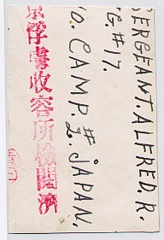 SERGEANT. ALFRED. R.
G.#17.
O. CAMP. #2. JAPAN.
京俘虜收容所檢閲濟